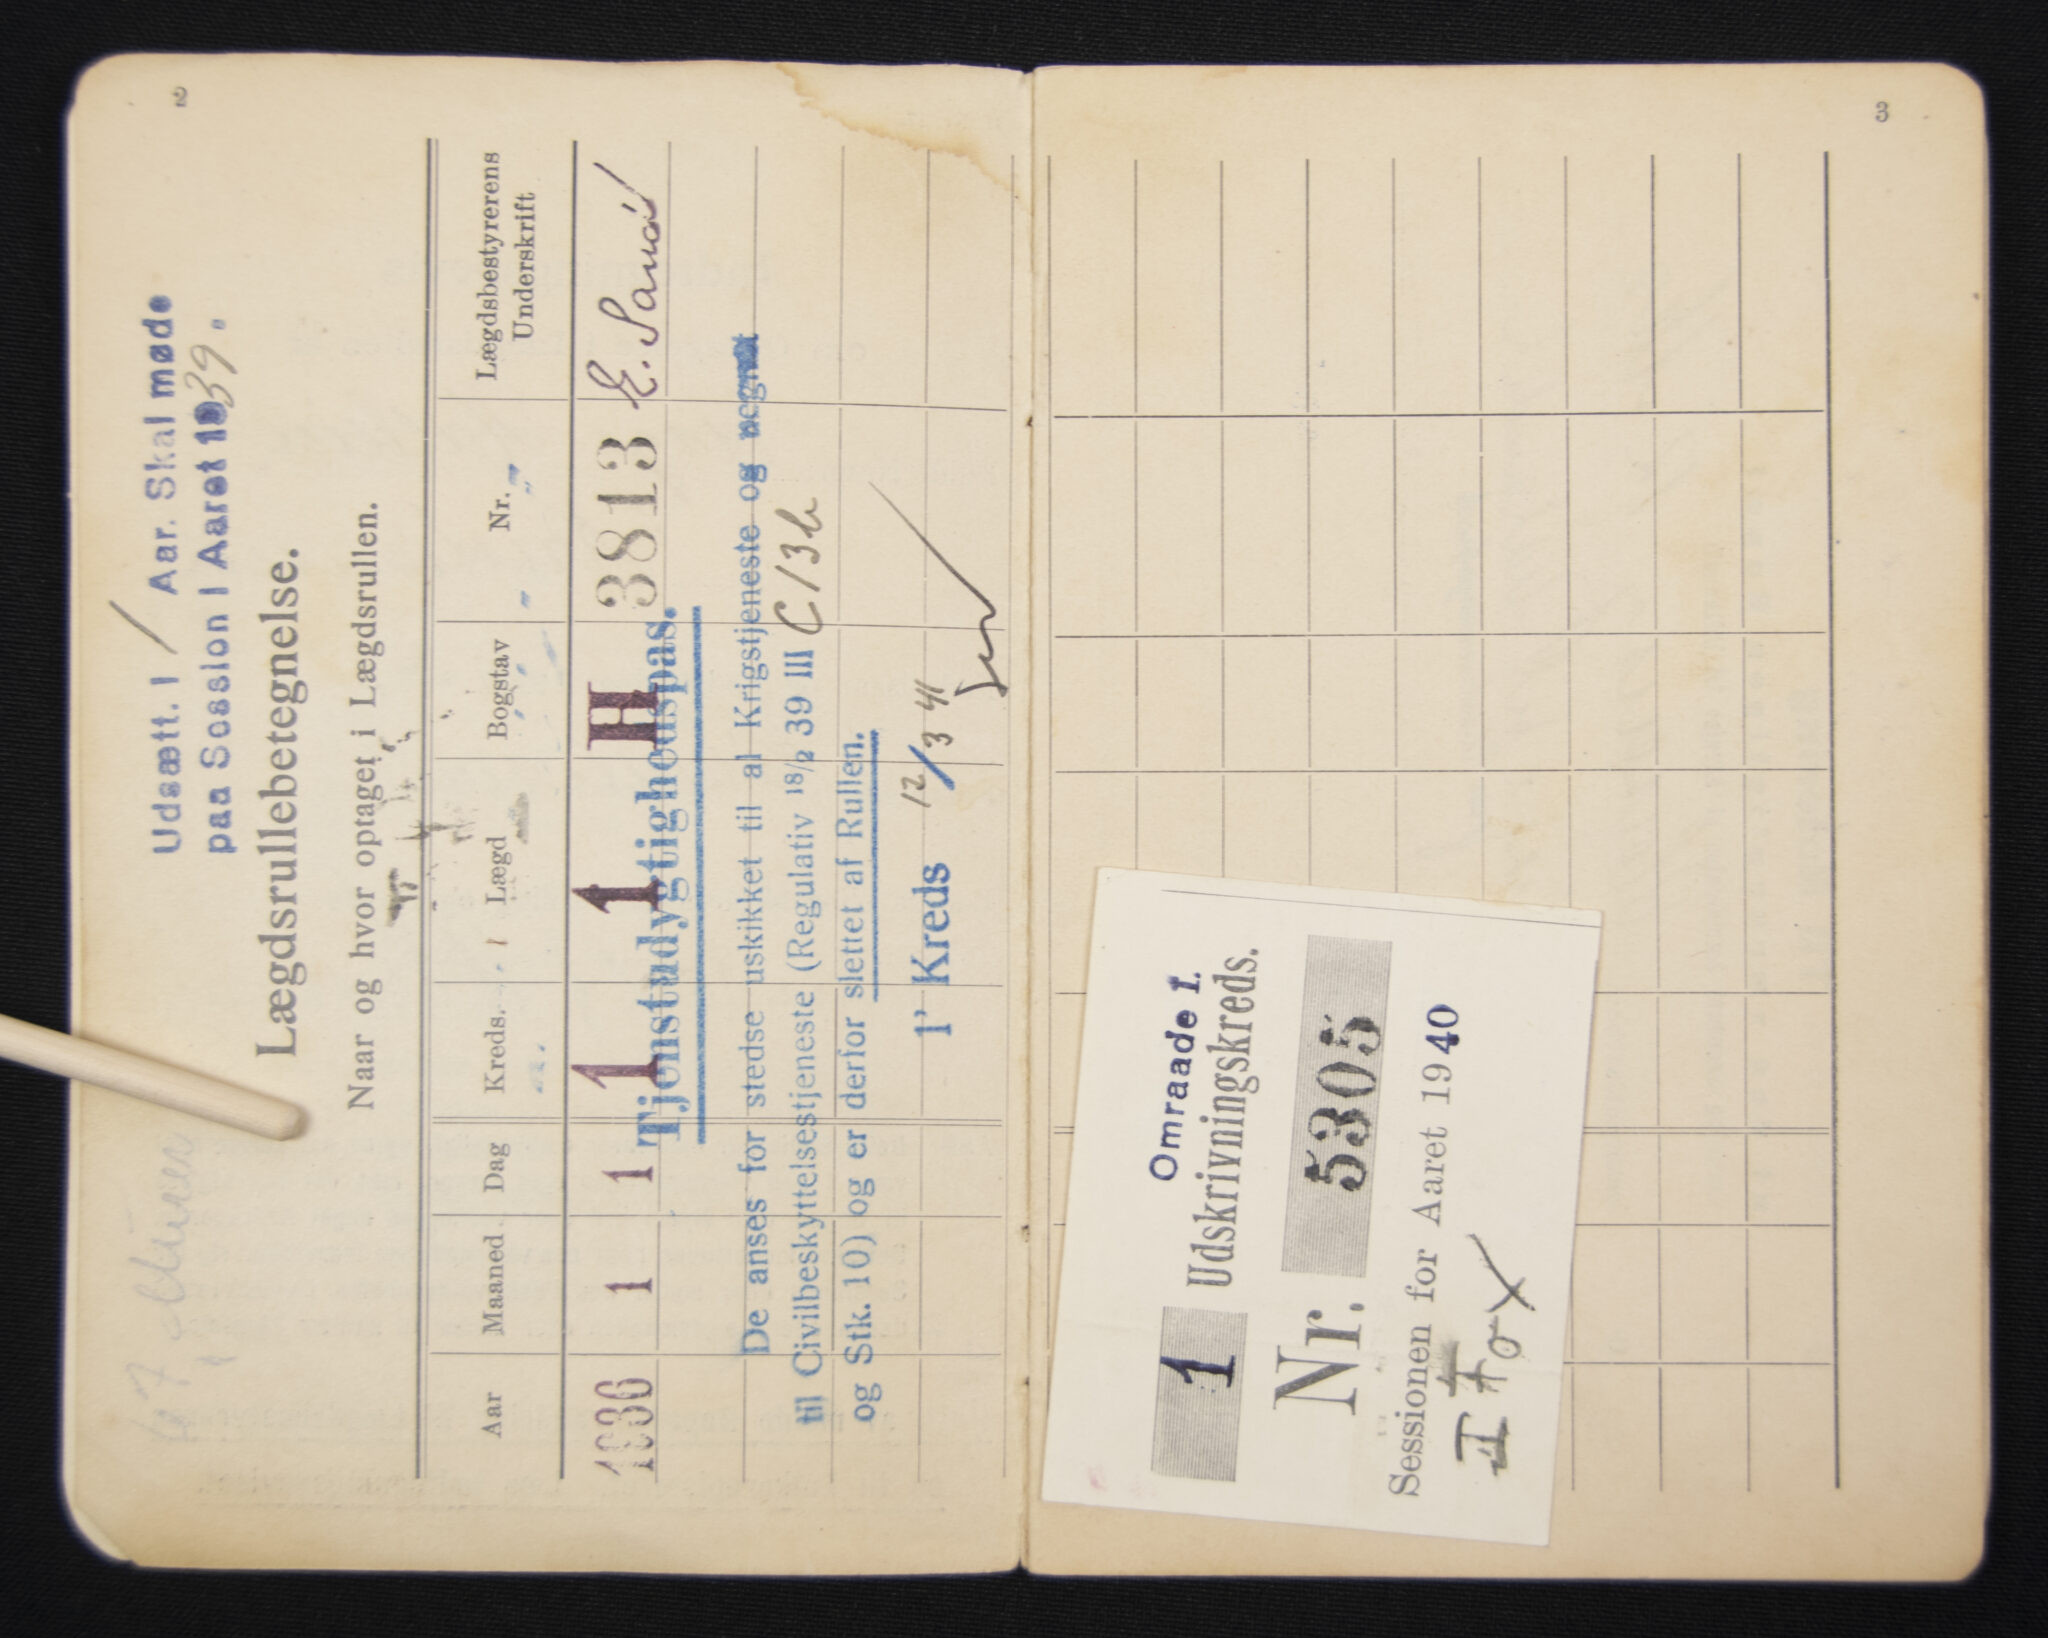 2
Udsætt. 1 / Aar. Skal møde
paa Session i Aaret 1939.
Lægdsrullebetegnelse.
Naar og hvor optaget i Lægdsrullen.
Aar Maaned Dag Kreds. Lægd Bogstav Nr. Lægdsbestyrerens Underskrift
1936 1 1 1 1 H 3813 E. Sand
Tjenstudygtighedspas.
De anses for stedse uskikket til al Krigstjeneste og
til Civilbeskyttelsestjeneste (Regulativ 18/2 39 III C 13b
og Stk. 10) og er derfor slettet af Rullen.
1' Kreds 12/3 41
3
Omraade I.
1 Udskrivningskreds.
Nr. 5305
Sessionen for Aaret 1940